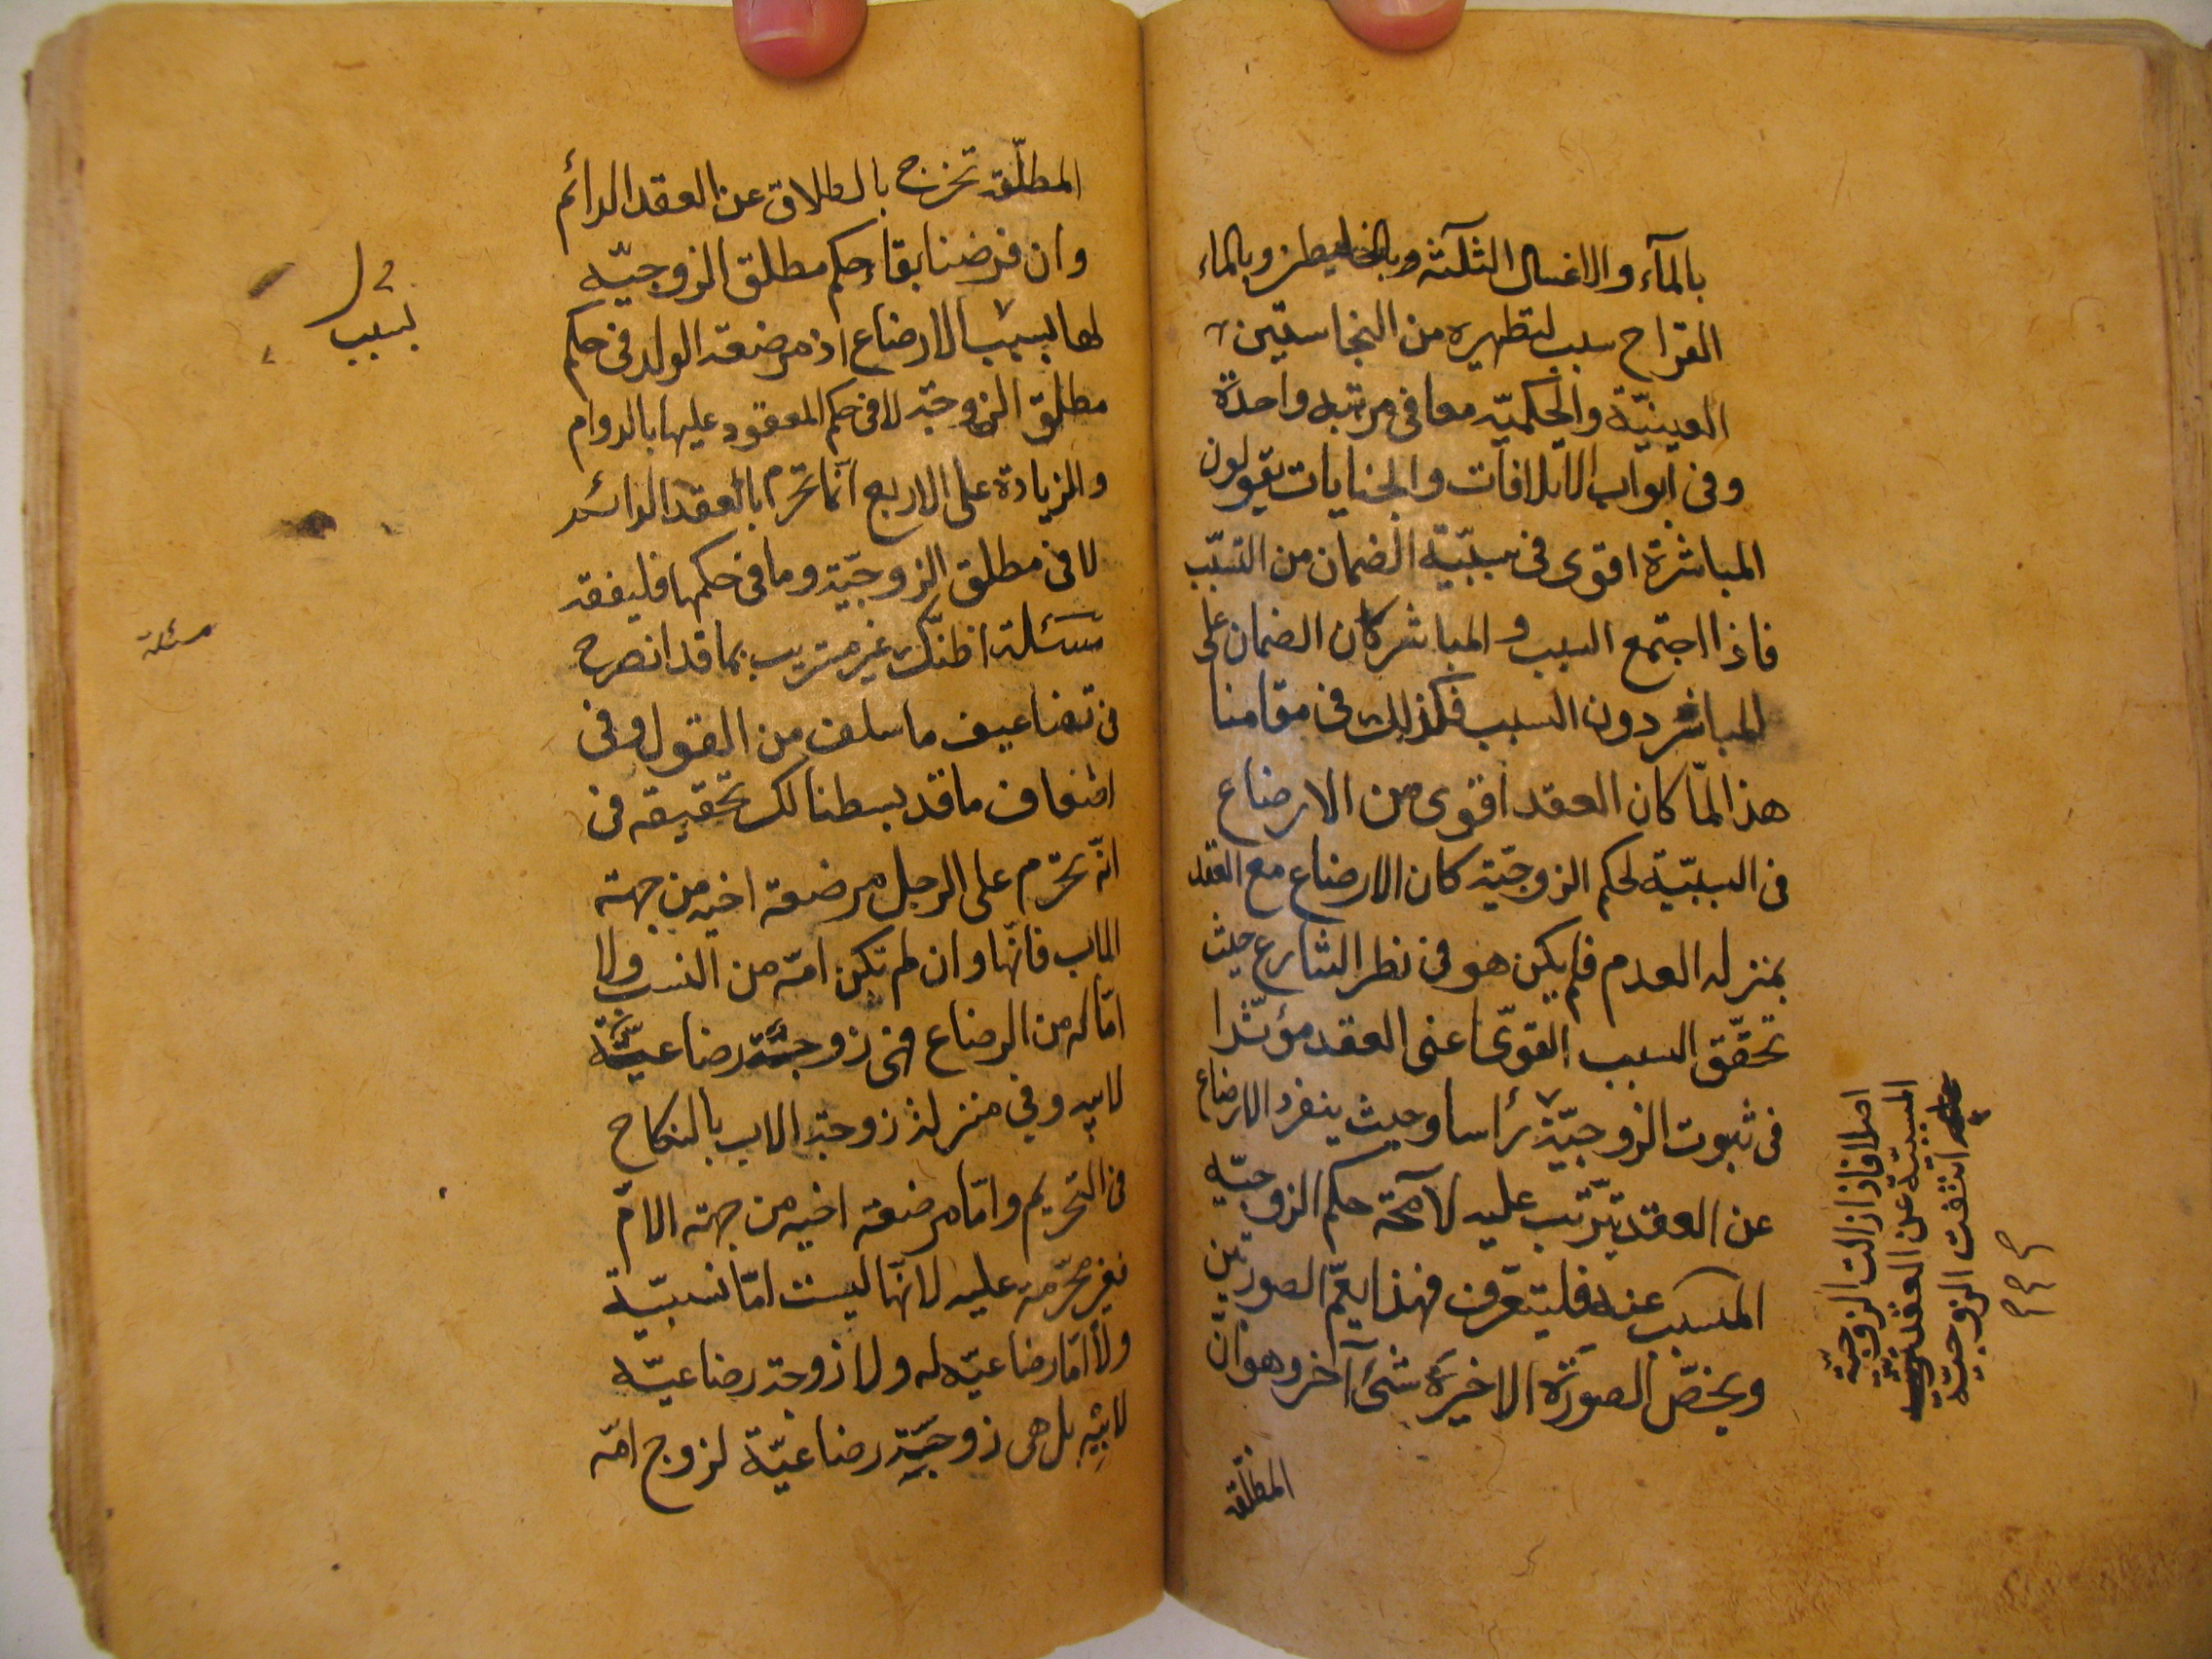 بالمآء والاغسال الثلثة وبالخليطين وبالماء
القراح سبب لتطهيره من النجاستين
العينيّة والحكميّة معا فى مرتبه واحدة
وفى ابواب الاتلافات والجنايات يقولون
المباشرة اقوى فى سببيّة الضمان من التسبّب
فاذا اجتمع السبب و المباشر كان الضمان على
المباشر دون السبب فكذلك فى مقامنا
هذا لمّا كان العقد اقوى من الارضاع
فى السببيّة لحكم الزوجيّة كان الارضاع مع العقد
بمنزله العدم فلم يكن هو فى نظر الشارع حيث
تحقّق السبب القوىّ اعنى العقد مؤثّرا
فى ثبوت الزوجيّة رأسا وحيث ينفرد الارضاع
عن العقد يترتب عليه لا محة حكم الزوجيّه
المسبب عنه فليتعرف فهذا يعمّ الصورتين
ويخصّ الصورة الاخيرة شئ آخر وهو انّ
المطلّقة
اصلا فاذا زالت الزوجيّة
المسببيّة عن العقد
انتفت الزوجيّه
المطلّقة تخرج بالطلاق عن العقد الدائم
وان فرضنا بقاء حكم مطلق الزوجيّه
لها بسبب الارضاع اذ مرضعة الولد فى حكم
مطلق الزوجة لا فى حكم المعقود عليها بالدوام
والزيادة على الاربع انّما تحرم بالعقد الدائم
لا فى مطلق الزوجيّة وما فى حكمها فليفقه
مسئلة اظنّك غير مستريب بما قد انصرح
فى تضاعيف ما سلف من القول وفى
اضعاف ما قد بسطنا لك تحقيقه فى
انّه تحرم على الرجل مرضعة اخيه من جهة
الاب فانّها وان لم تكن امّه من النسب ولا
امّا له من الرضاع فهى زوجة رضاعيّة
لابيه وفى منزلة زوجة الاب بالنكاح
فى التحريم وامّا مرضعة اخيه من جهة الامّ
فغير محرّمة عليه لانّها ليست امّا نسبيّة
ولا امّا رضاعيّه له ولا زوجة رضاعيّه
لابيه بل هى زوجة رضاعيّة لزوج امّه
بسبب
مسئلة